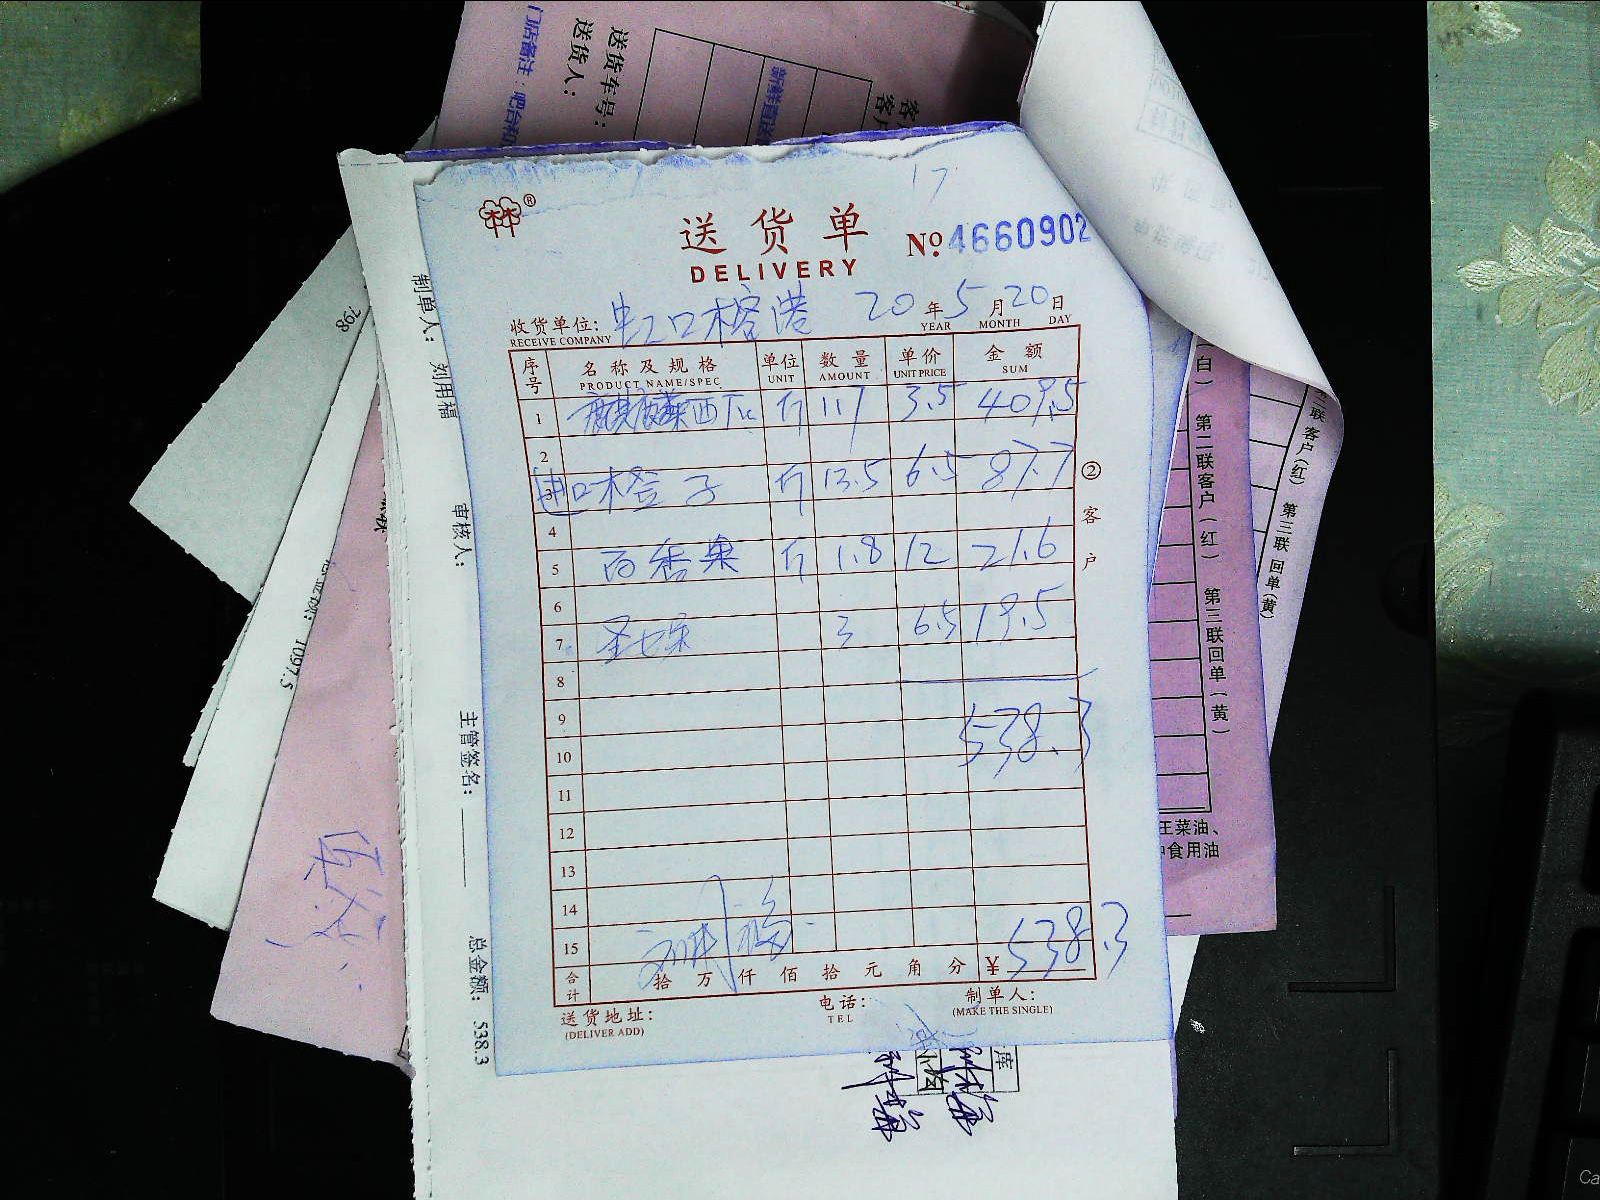 门店备注：吧台和
送货车号：
送货人：
17
送货单
DELIVERY
№ 4660902
收货单位: 虹口榕港 20年5月20日
RECEIVE COMPANY YEAR MONTH DAY
序号 名称及规格 单位 数量 单价 金额
PRODUCT NAME/SPEC UNIT AMOUNT UNIT PRICE SUM
1 麒麟西瓜 斤 117 3.5 409.5
2
3 进口橙子 斤 13.5 6.5 87.7
4
5 百香果 斤 1.8 12 21.6
6
7 圣女果 3 6.5 19.5
8
9 538.3
10
11
12
13
14
15
合计 拾万仟佰拾元角分 ¥ 538.3
送货地址: 电话: 制单人:
(DELIVER ADD) TEL (MAKE THE SINGLE)
② 客户
制单人： 刘用福
审核人：
主管签名：
总金额： 538.3
798
1097.5
白）
第二联客户（红）
第三联回单（黄）
联客户(红)
第三联回单(黄)
王菜油、
食用油
库